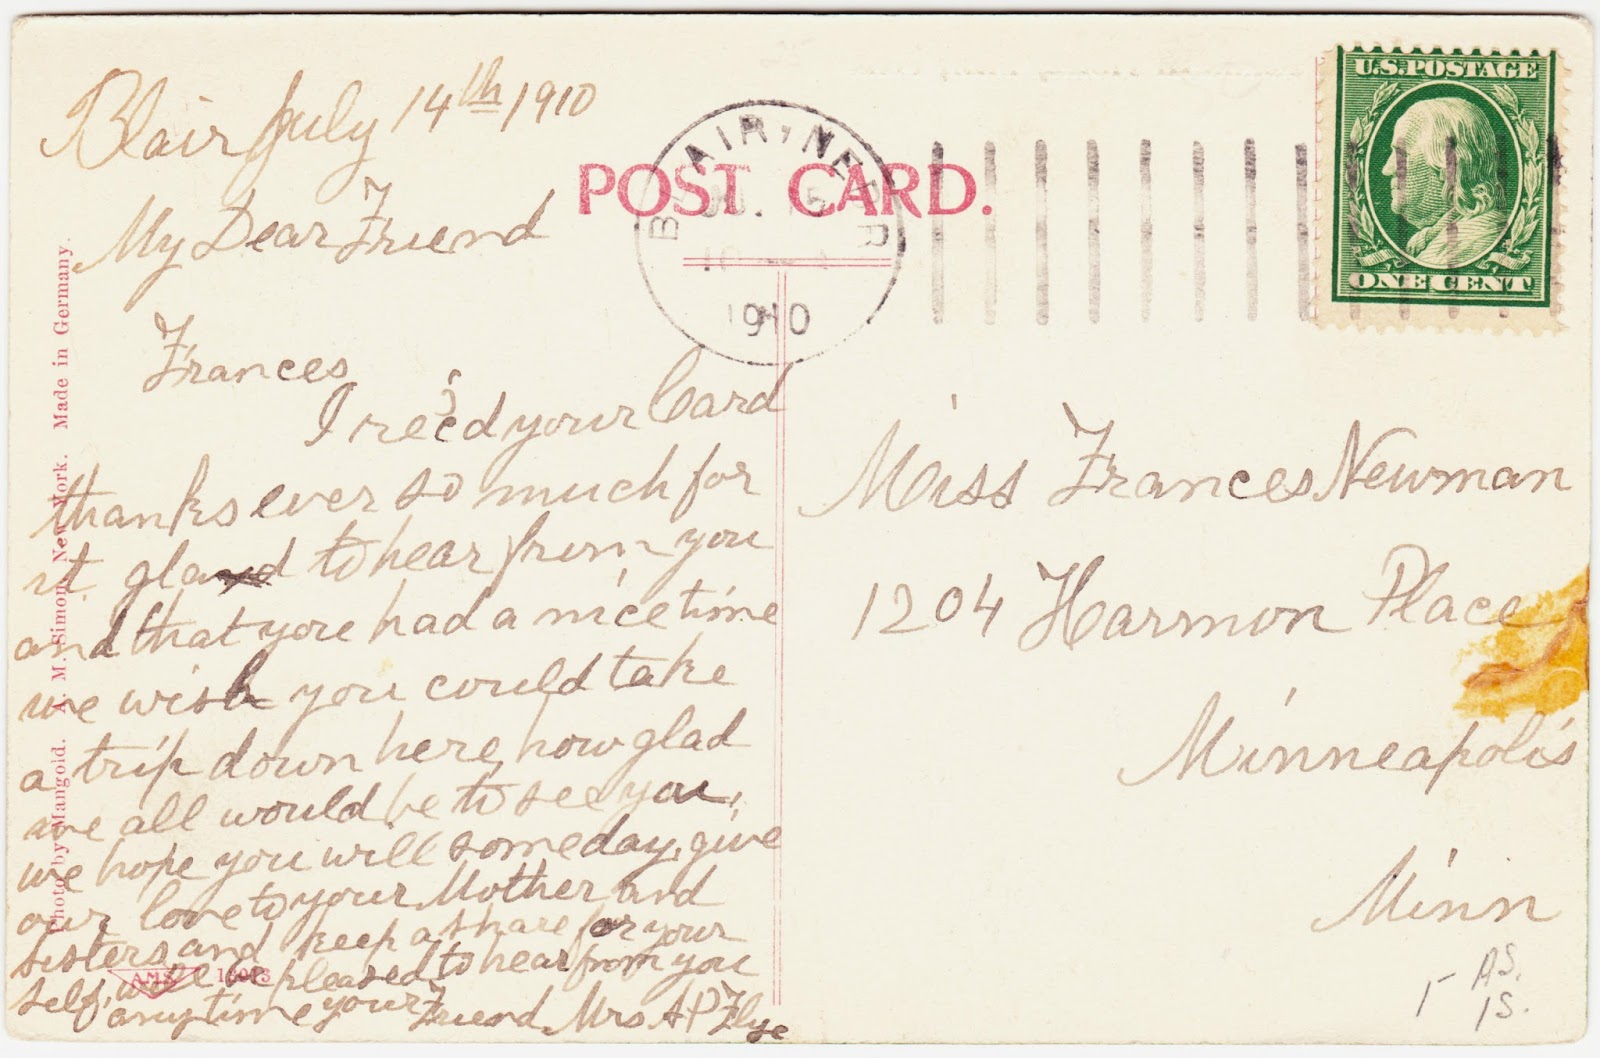 Blair July 14th 1910
My Dear Friend
Frances
I rec'd your Card
thanks ever so much for
it. glad to hear from you
and that you had a nice time
we wish you could take
a trip down here, how glad
we all would be to see you,
we hope you will someday, give
our love to your Mother and
sisters and keep a share for your
self, will be pleased to hear from you
anytime your Friend Mrs A P Flye
POST CARD.
BLAIR, NEBR
JUL 15
1910
U.S. POSTAGE
ONE CENT
Miss Frances Newman
1204 Harmon Place
Minneapolis
Minn
AS.
1S.
Photo by Mangold. A. M. Simon, New York. Made in Germany.
AMS